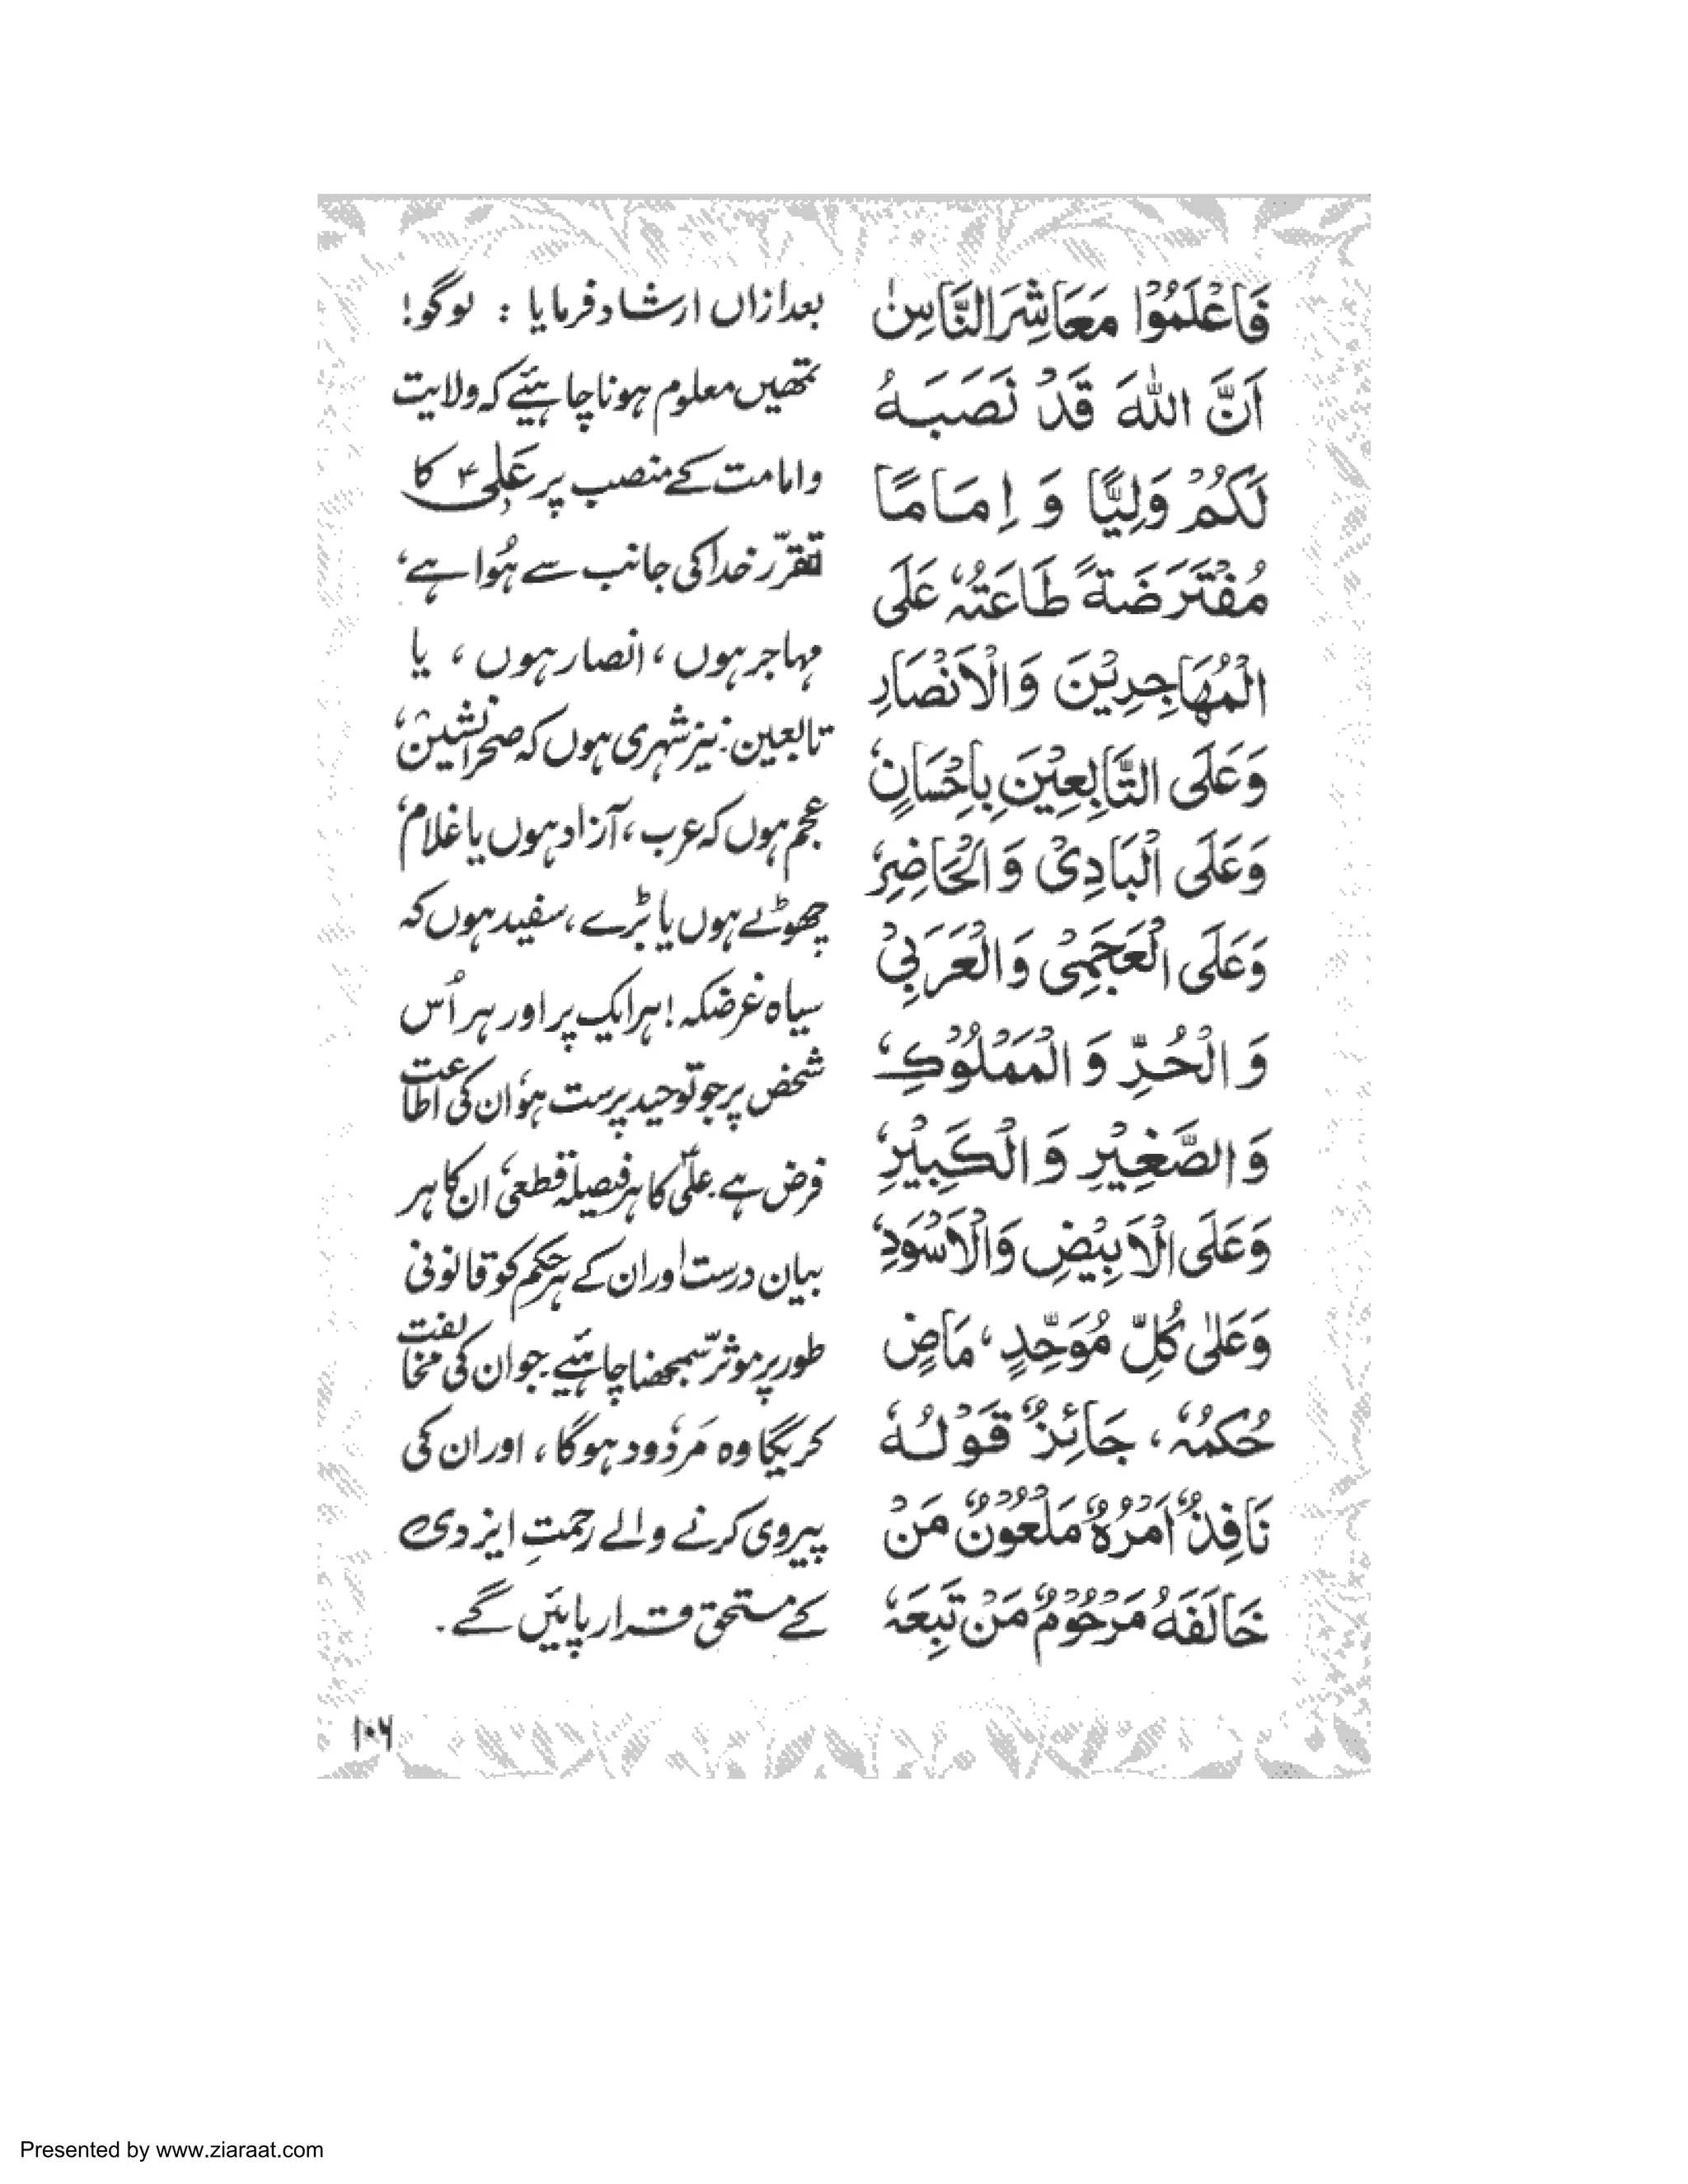 فَاعْلَمُوْا مَعَاشِرَالنَّاسِ
اَنَّ اللّٰهَ قَدْ نَصَبَهُ
لَكُمْ وَلِيًّا وَ اِمَامًا
مُفْتَرَضَةً طَاعَتُهٗ عَلَى
الْمُهَاجِرِيْنَ وَالْاَنْصَارِ
وَعَلَى التَّابِعِيْنَ بِاِحْسَانٍ،
وَعَلَى الْبَادِىْ وَ الْحَاضِرِ،
وَعَلَى الْعَجَمِىْ وَالْعَرَبِىْ
وَ الْحُرِّ وَ الْمَمْلُوْكِ،
وَ الصَّغِيْرِ وَ الْكَبِيْرِ،
وَعَلَى الْاَبْيَضِ وَالْاَسْوَدِ،
وَعَلٰى كُلِّ مُوَحِّدٍ، مَاضٍ
حُكْمُهٗ، جَائِزٌ قَوْلُهٗ
نَافِذٌ اَمْرُهٗ مَلْعُوْنٌ مَنْ
خَالَفَهُ مَرْحُوْمٌ مَنْ تَبِعَهٗ
بعدازاں ارشاد فرمایا : لوگو!
تمھیں معلوم ہونا چاہیئے کہ ولایت
وامامت کے منصب پر عَلی؏ کا
تقرّر خدا کی جانب سے ہُوا ہے،
مہاجر ہوں ، انصار ہوں ، یا
تابعین۔ نیز شہری ہوں کہ صحرانشین،
عجم ہوں کہ عرب ، آزاد ہوں یا غلام،
چھوٹے ہوں یا بڑے ، سفید ہوں کہ
سیاہ غرضکہ! ہر ایک پر اور ہر اُس
شخص پر جو توحید پرست ہو، ان کی اطاعت
فرض ہے۔ علیؑ کا ہر فیصلہ قطعی، ان کا ہر
بیان درست اور ان کے ہر حکم کو قانونی
طور پر موثّر سمجھنا چاہیئے۔ جو ان کی مخالفت
کریگا وہ مَردُود ہوگا ، اور ان کی
پیروی کرنے والے رحمتِ ایزدی
کے مستحق قرار پائیں گے۔
۱۰۶
Presented by www.ziaraat.com